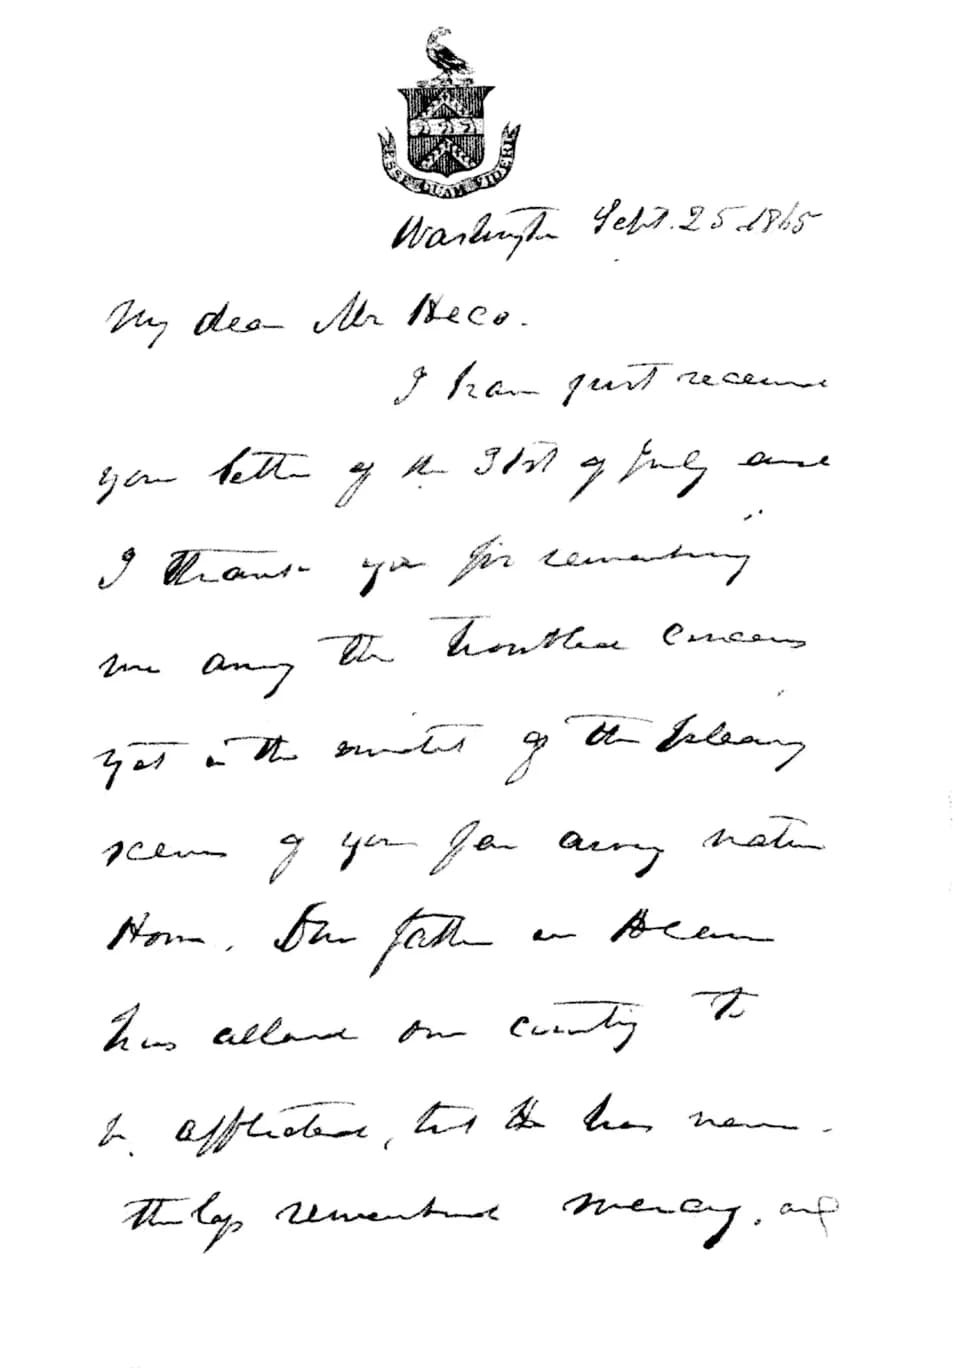 ESSE QUAM VIDERI
Washington Sept. 25 1865
My dear Mr Heco.
I have just received
your letter of the 31st of July and
I thank you for remembering
me among the troubled concerns
yet in the midst of the pleasing
scenes of your far away native
Home. Our father in Heaven
has allowed our country to
be afflicted, but He has never-
theless remembered mercy, and